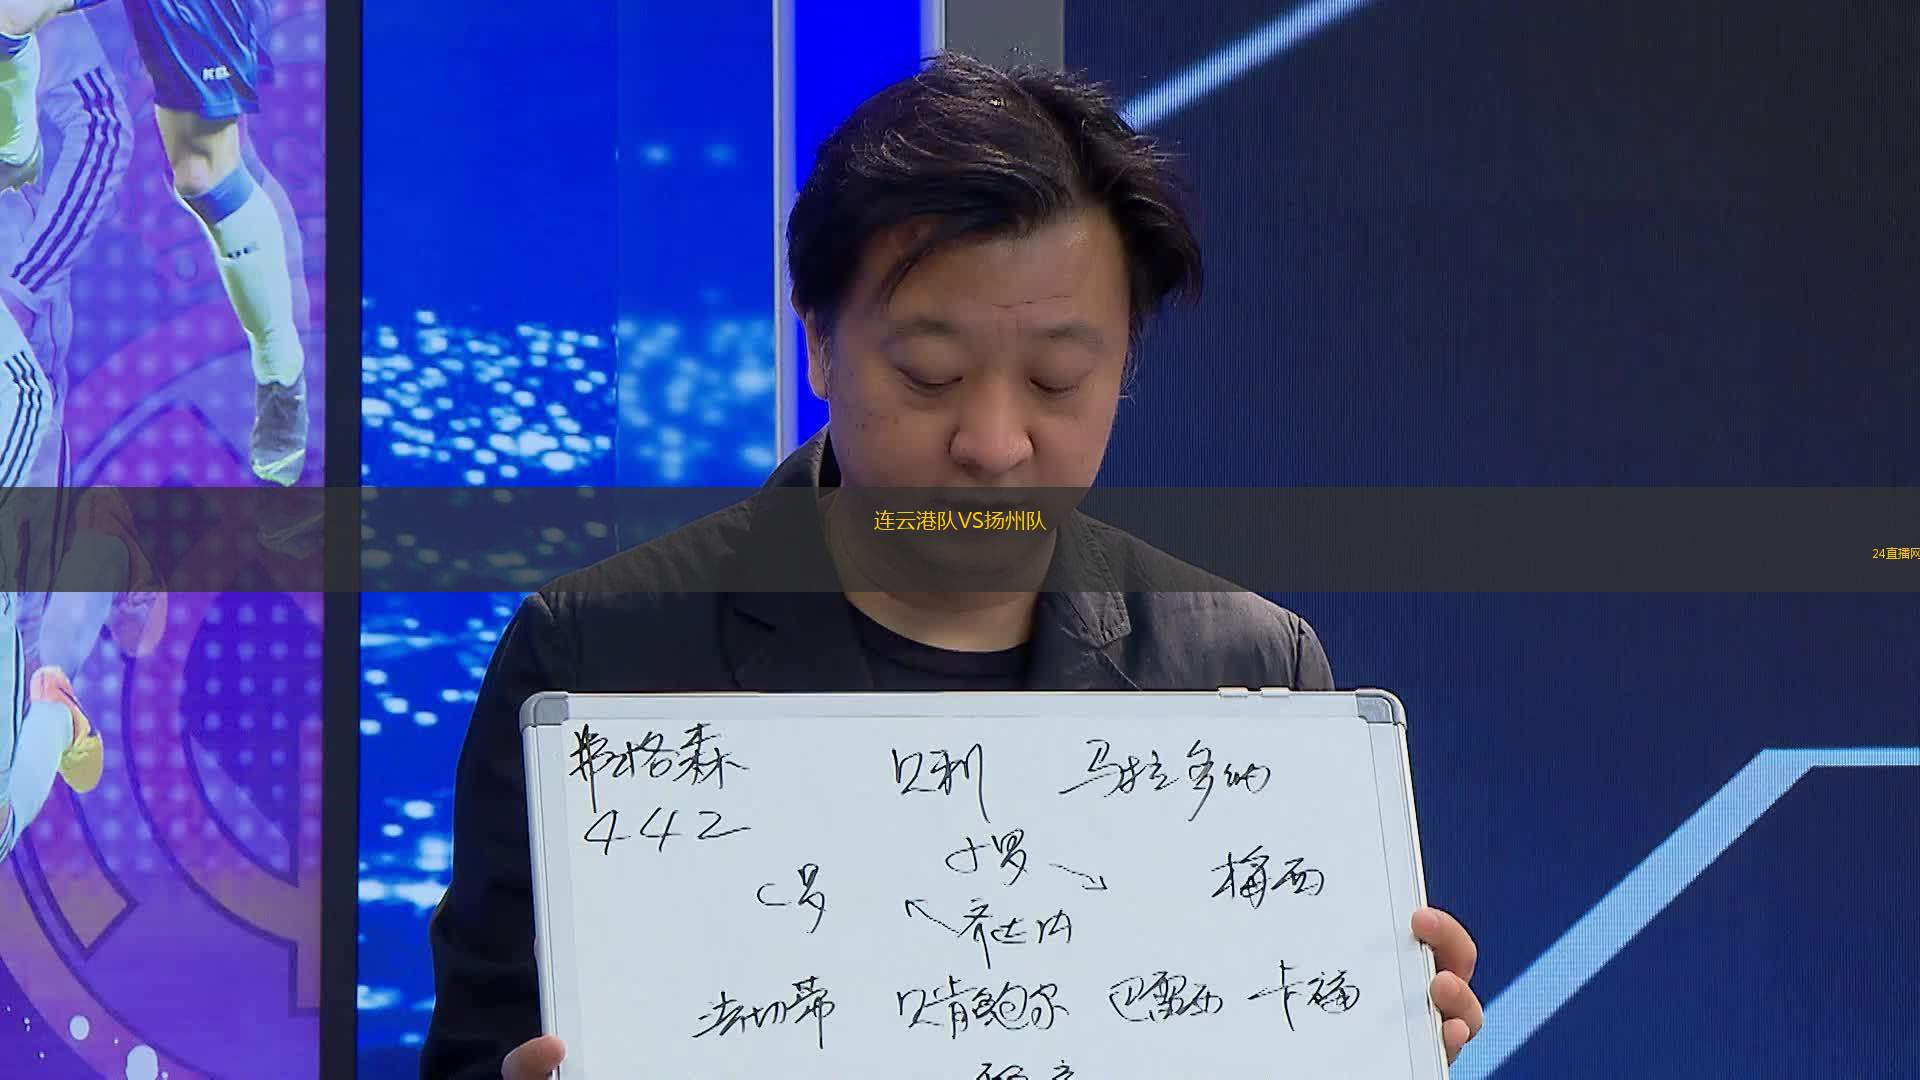 连云港队VS扬州队
24直播网
弗格森 贝利 马拉多纳
442
小罗
C罗 梅西
齐达内
法切蒂 贝肯鲍尔 巴雷西 卡福